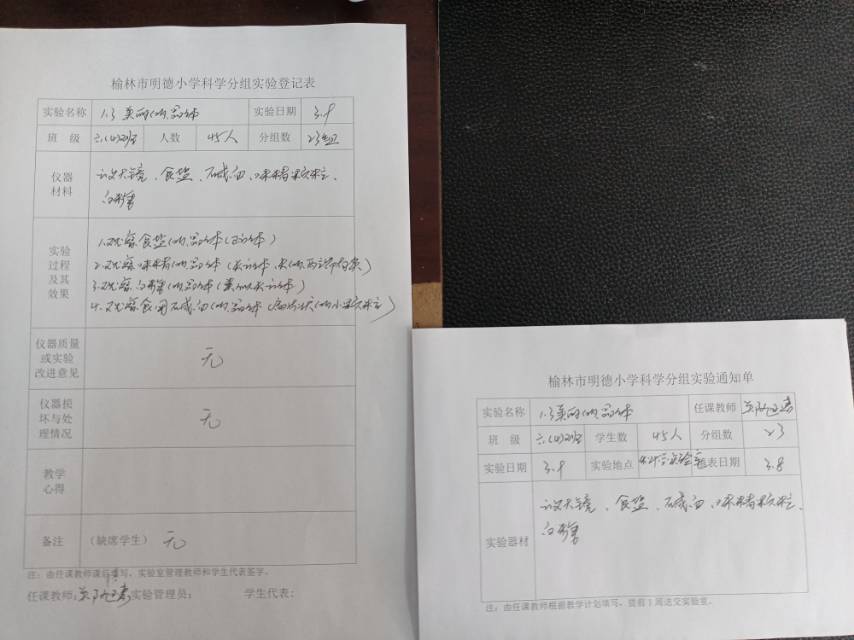 榆林市明德小学科学分组实验登记表
实验名称 1.3 美丽的晶体 实验日期 3.9
班 级 六.(4)班 人数 45人 分组数 23组
仪器材料 放大镜、食盐、碱面、味精颗粒、
白糖
实验过程及其效果
1.观察食盐的晶体(立方体)
2.观察味精的晶体
3.观察白糖的晶体
4.观察食用碱面的晶体
仪器质量或实验改进意见 无
仪器损坏与处理情况 无
教学心得
备注 (缺席学生) 无
注:由任课教师课后填写,实验室管理教师和学生代表签字。
任课教师: 实验管理员: 学生代表:
榆林市明德小学科学分组实验通知单
实验名称 1.3美丽的晶体 任课教师
班 级 六.(4)班 学生数 45人 分组数 23
实验日期 3.9 实验地点 科学实验室 填表日期 3.8
实验器材 放大镜、食盐、碱面、味精颗粒、
白糖
注:由任课教师根据教学计划填写,提前1周送交实验室。